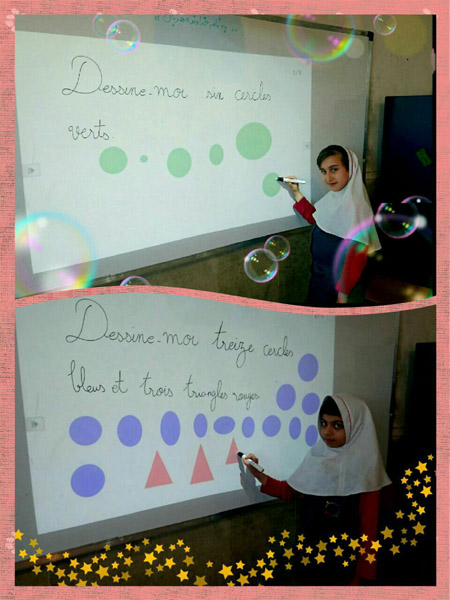 Dessine-moi six cercles
verts.
Dessine-moi treize cercles
bleus et trois triangles rouges